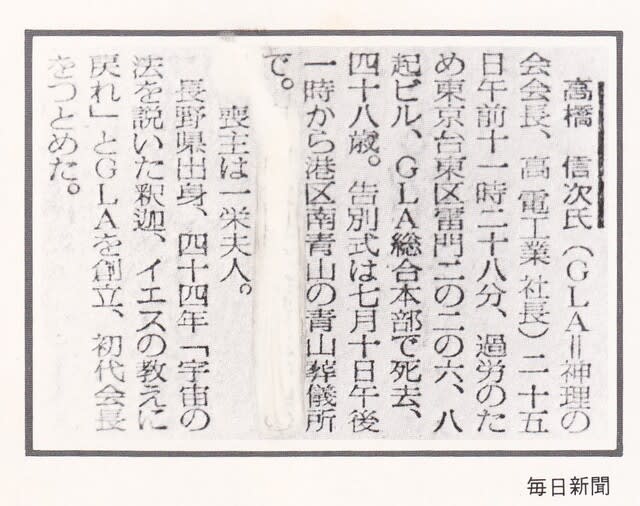 高橋　信次氏（ＧＬＡ＝神理の
会会長、高電工業社長）二十五
日午前十一時二十八分、過労のた
め東京台東区雷門二の二の六、八
起ビル、ＧＬＡ総合本部で死去、
四十八歳。告別式は七月十日午後
一時から港区南青山の青山葬儀所
で。
喪主は一栄夫人。
長野県出身、四十四年「宇宙の
法を説いた釈迦、イエスの教えに
戻れ」とＧＬＡを創立、初代会長
をつとめた。
毎日新聞